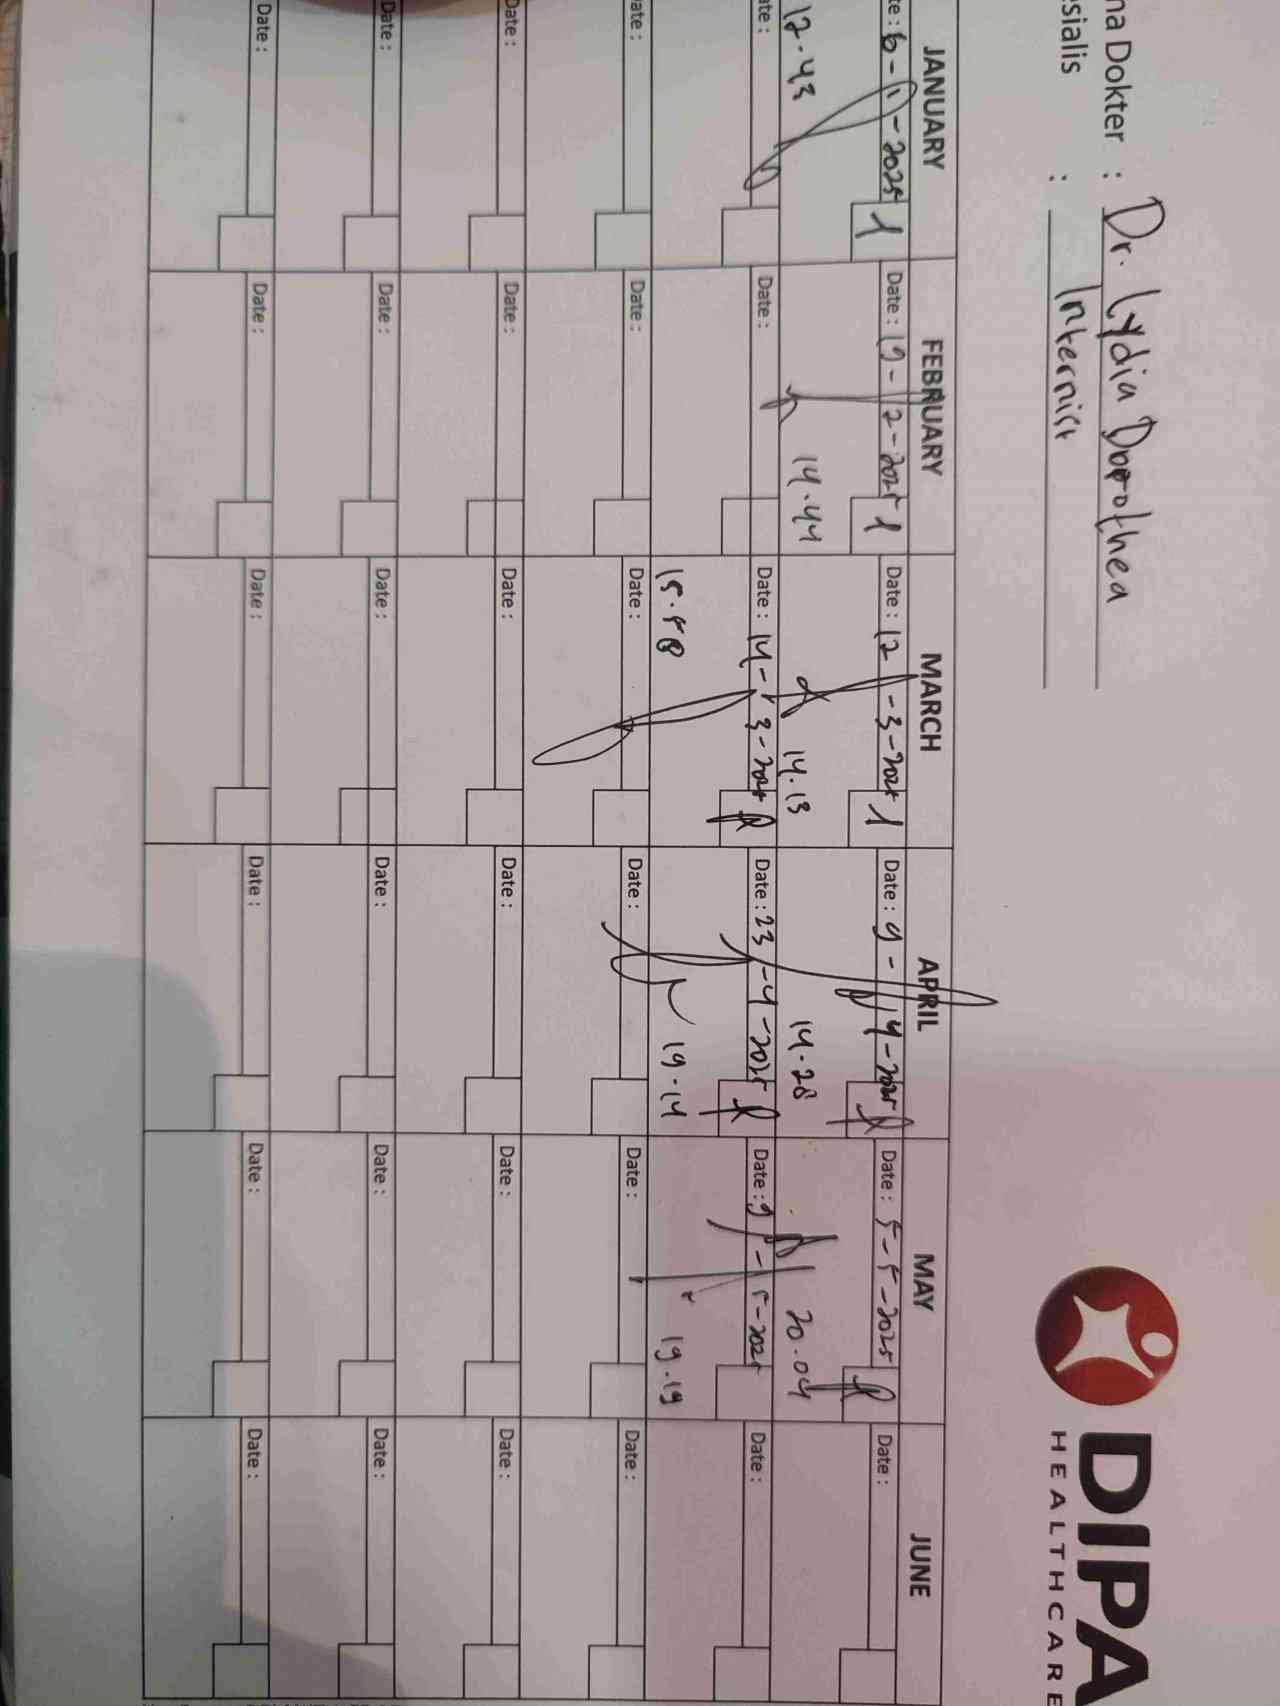 na Dokter : Dr. Lydia Dorothea
esialis : Internist
DIPA
HEALTHCARE
JANUARY FEBRUARY MARCH APRIL MAY JUNE
te : 6-1-2025 1 Date : 19-2-2025 1 Date : 12-3-2025 1 Date : 9-4-2025 Date : 5-5-2025 Date :
12.43 14.44 14.13 14.28 20.04
ate : Date : Date : 14-3-2025 Date : 23-4-2025 Date : 9-5-2025 Date :
15.58 19.14 19.19
ate : Date : Date : Date : Date : Date :
Date : Date : Date : Date : Date : Date :
Date : Date : Date : Date : Date : Date :
Date : Date : Date : Date : Date : Date :